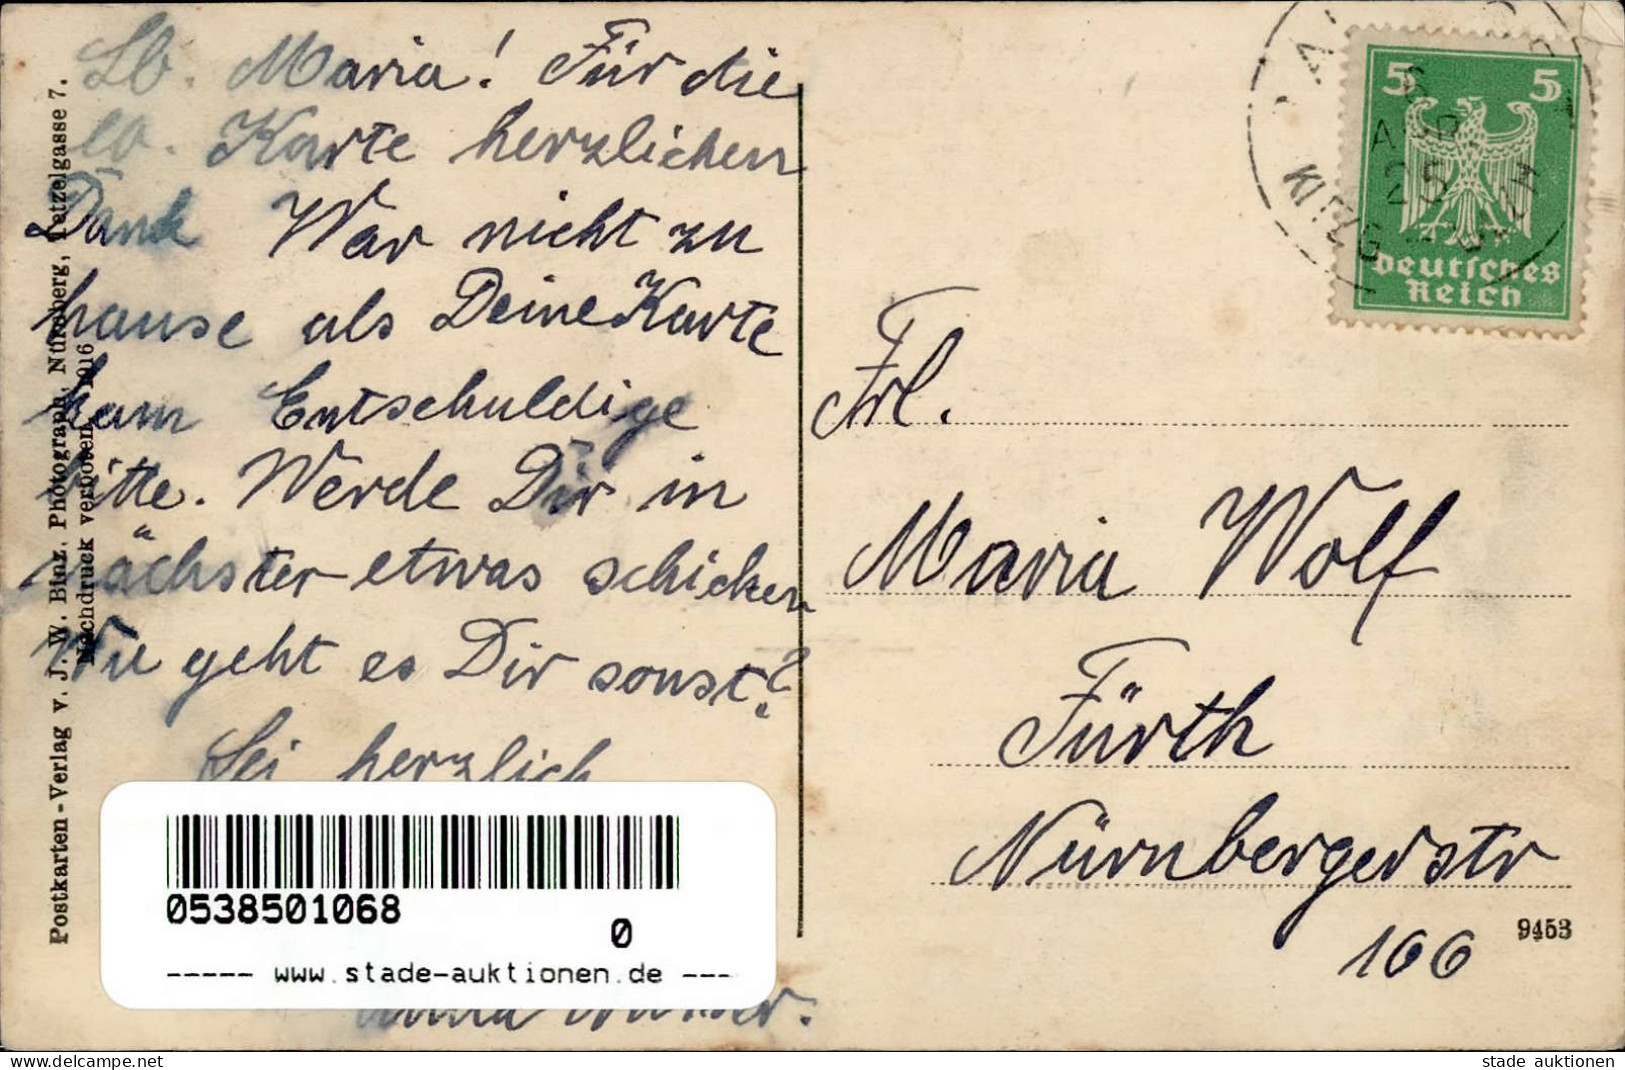 Lb. Maria! Für die
lb. Karte herzlichen
Dank War nicht zu
hause als Deine Karte
kam Entschuldige
bitte. Werde Dir in
nächster etwas schicken
Wie geht es Dir sonst?
Sei herzlich
Postkarten-Verlag v. J. W. Binz. Photograph, Nürnberg, Tetzelgasse 7.
Nachdruck verboten. 1916
5 5
APR
25
Deutsches
Reich
Frl.
Maria Wolf
Fürth
Nürnbergerstr
106
9453
0538501068
0
----- www.stade-auktionen.de ---
stade auktionen